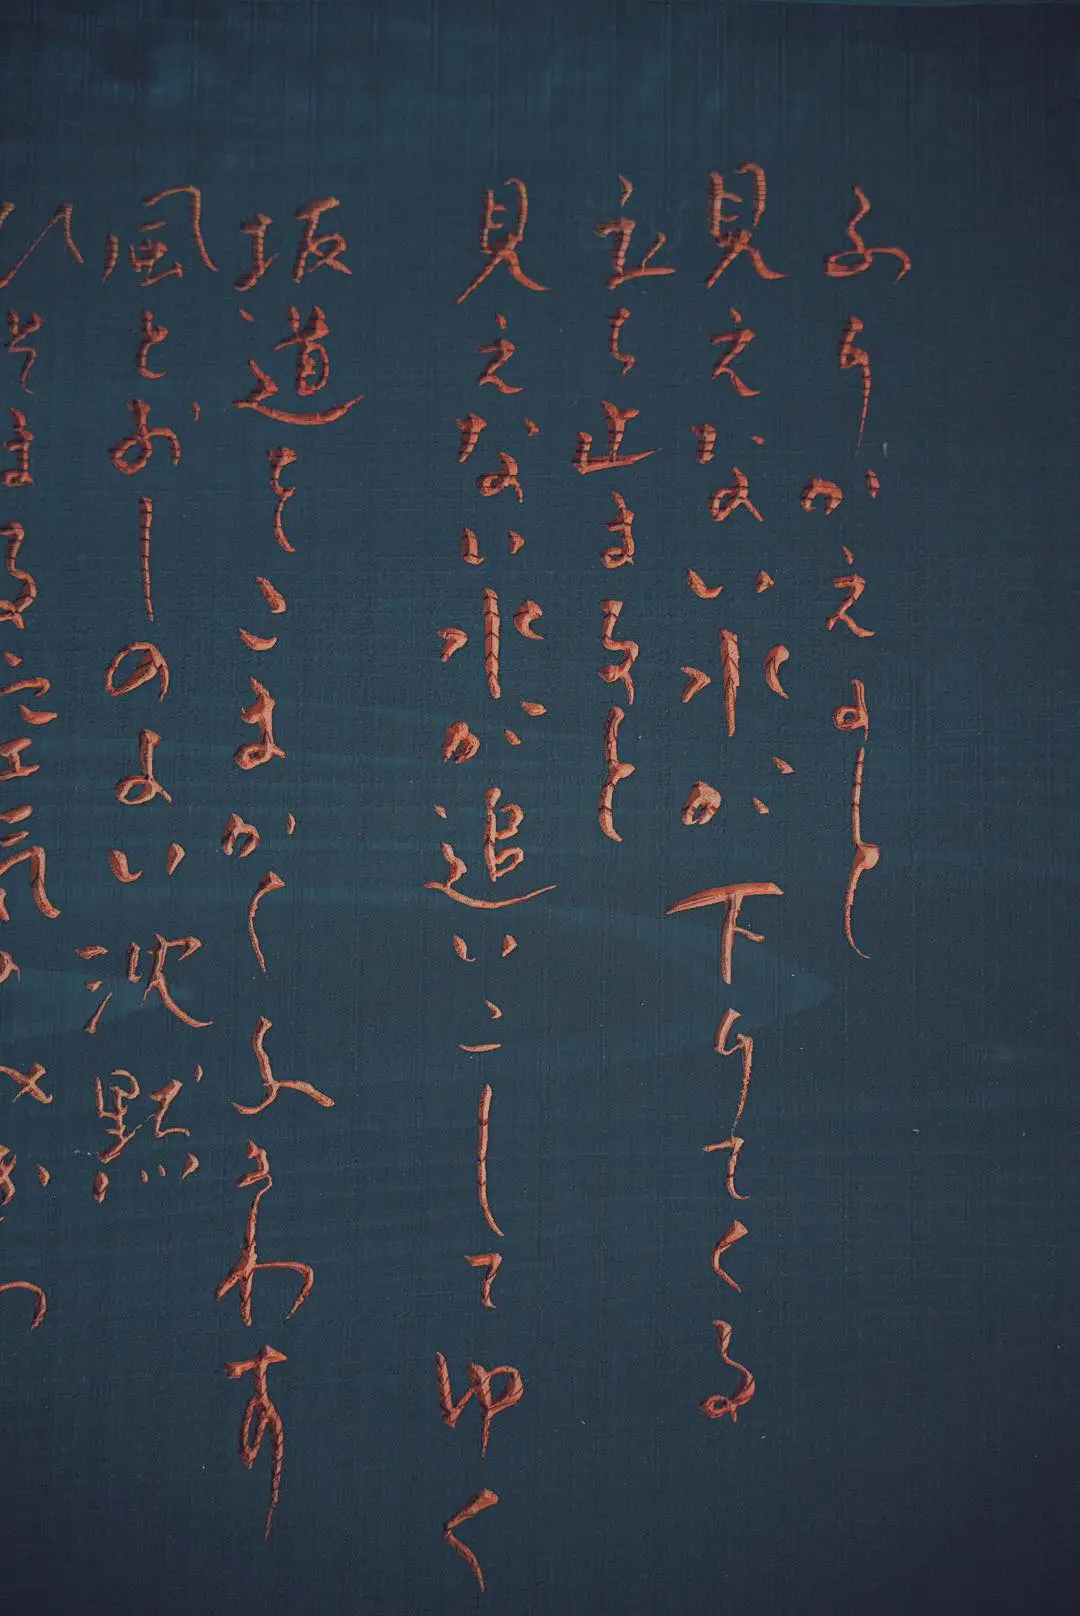 ふりかえると
見えない水が下りてくる
立ち止まると
見えない水が追いこしてゆく
坂道をこまかくふるわす
風とおしのよい沈黙
ひそまる空気の